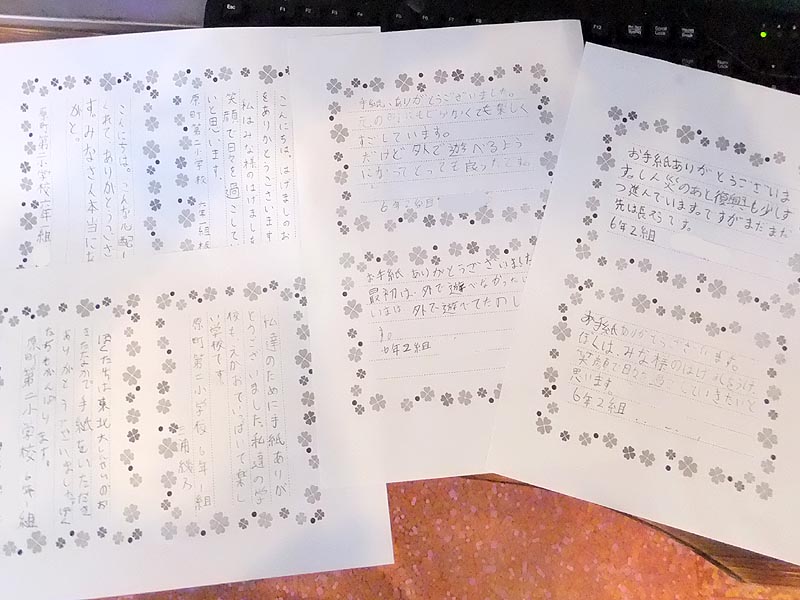 こんにちは、はげましのお
をありがとうございます。
私はみな様のはげましを
笑顔で日々を過ごして
いと思います。
原町第二小学校 六年一組
こんにちは。こんなに心配し
くれて、ありがとうござ
す。みなさん本当にあ
がと。
原町第二小学校六年一組
私達のために手紙ありが
とうございました。私達の学
校も、えがおでいっぱいで楽し
い学校です。
原町第二小学校 6年1組
ぼくたちは東北大しんさいのお
きたなかで手紙をいただき
ありがとうございました。ぼく
たちもがんばります。
原町第二小学校 6年1組
手紙、ありがとうございました。
楽しく
すごしています。
だけど外で遊べるよう
になってとっても良かったです。
6年2組
お手紙 ありがとうございました
最初は外で遊べなかった
いまは外で遊べてたのし
す。
6年2組
お手紙ありがとうございま
す。しん災のあと復興も少しず
つ進んでいます。ですがまだまだ
先は長そうです。
6年2組
お手紙ありがとうございます。
ぼくは、みな様のはげましをうけ、
笑顔で日々過ごしていきたいと
思います。
6年2組